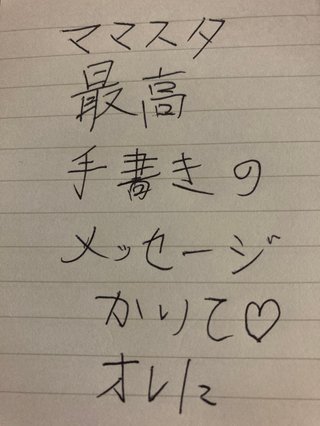 ママスタ
最高
手書きの
メッセージ
かいて♡
オレに